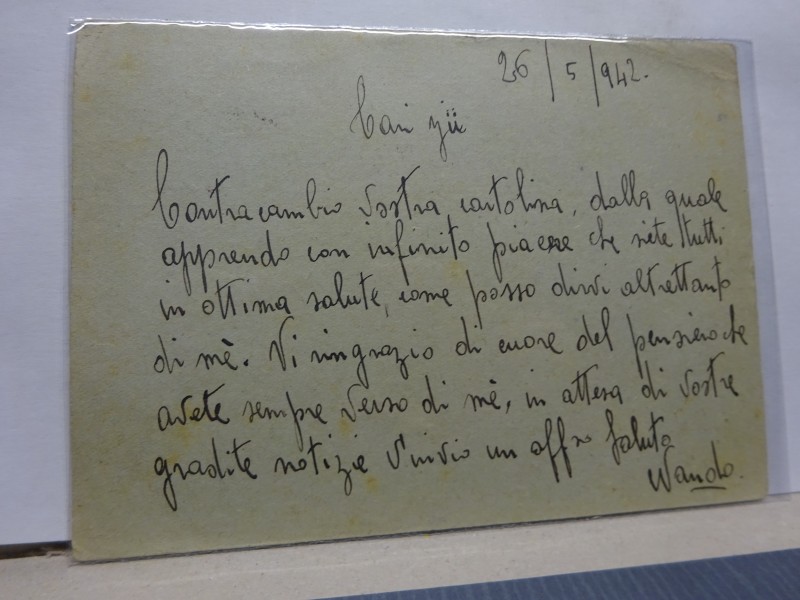 26/5/942.
Cari zii
Contracambio Vostra cartolina, dalla quale
apprendo con infinito piacere che siete tutti
in ottima salute, come posso dirvi altrettanto
di mè. Vi ringrazio di cuore del pensiero che
avete sempre verso di mè, in attesa di Vostre
gradite notizie V'invio un affso Saluto
Wando.